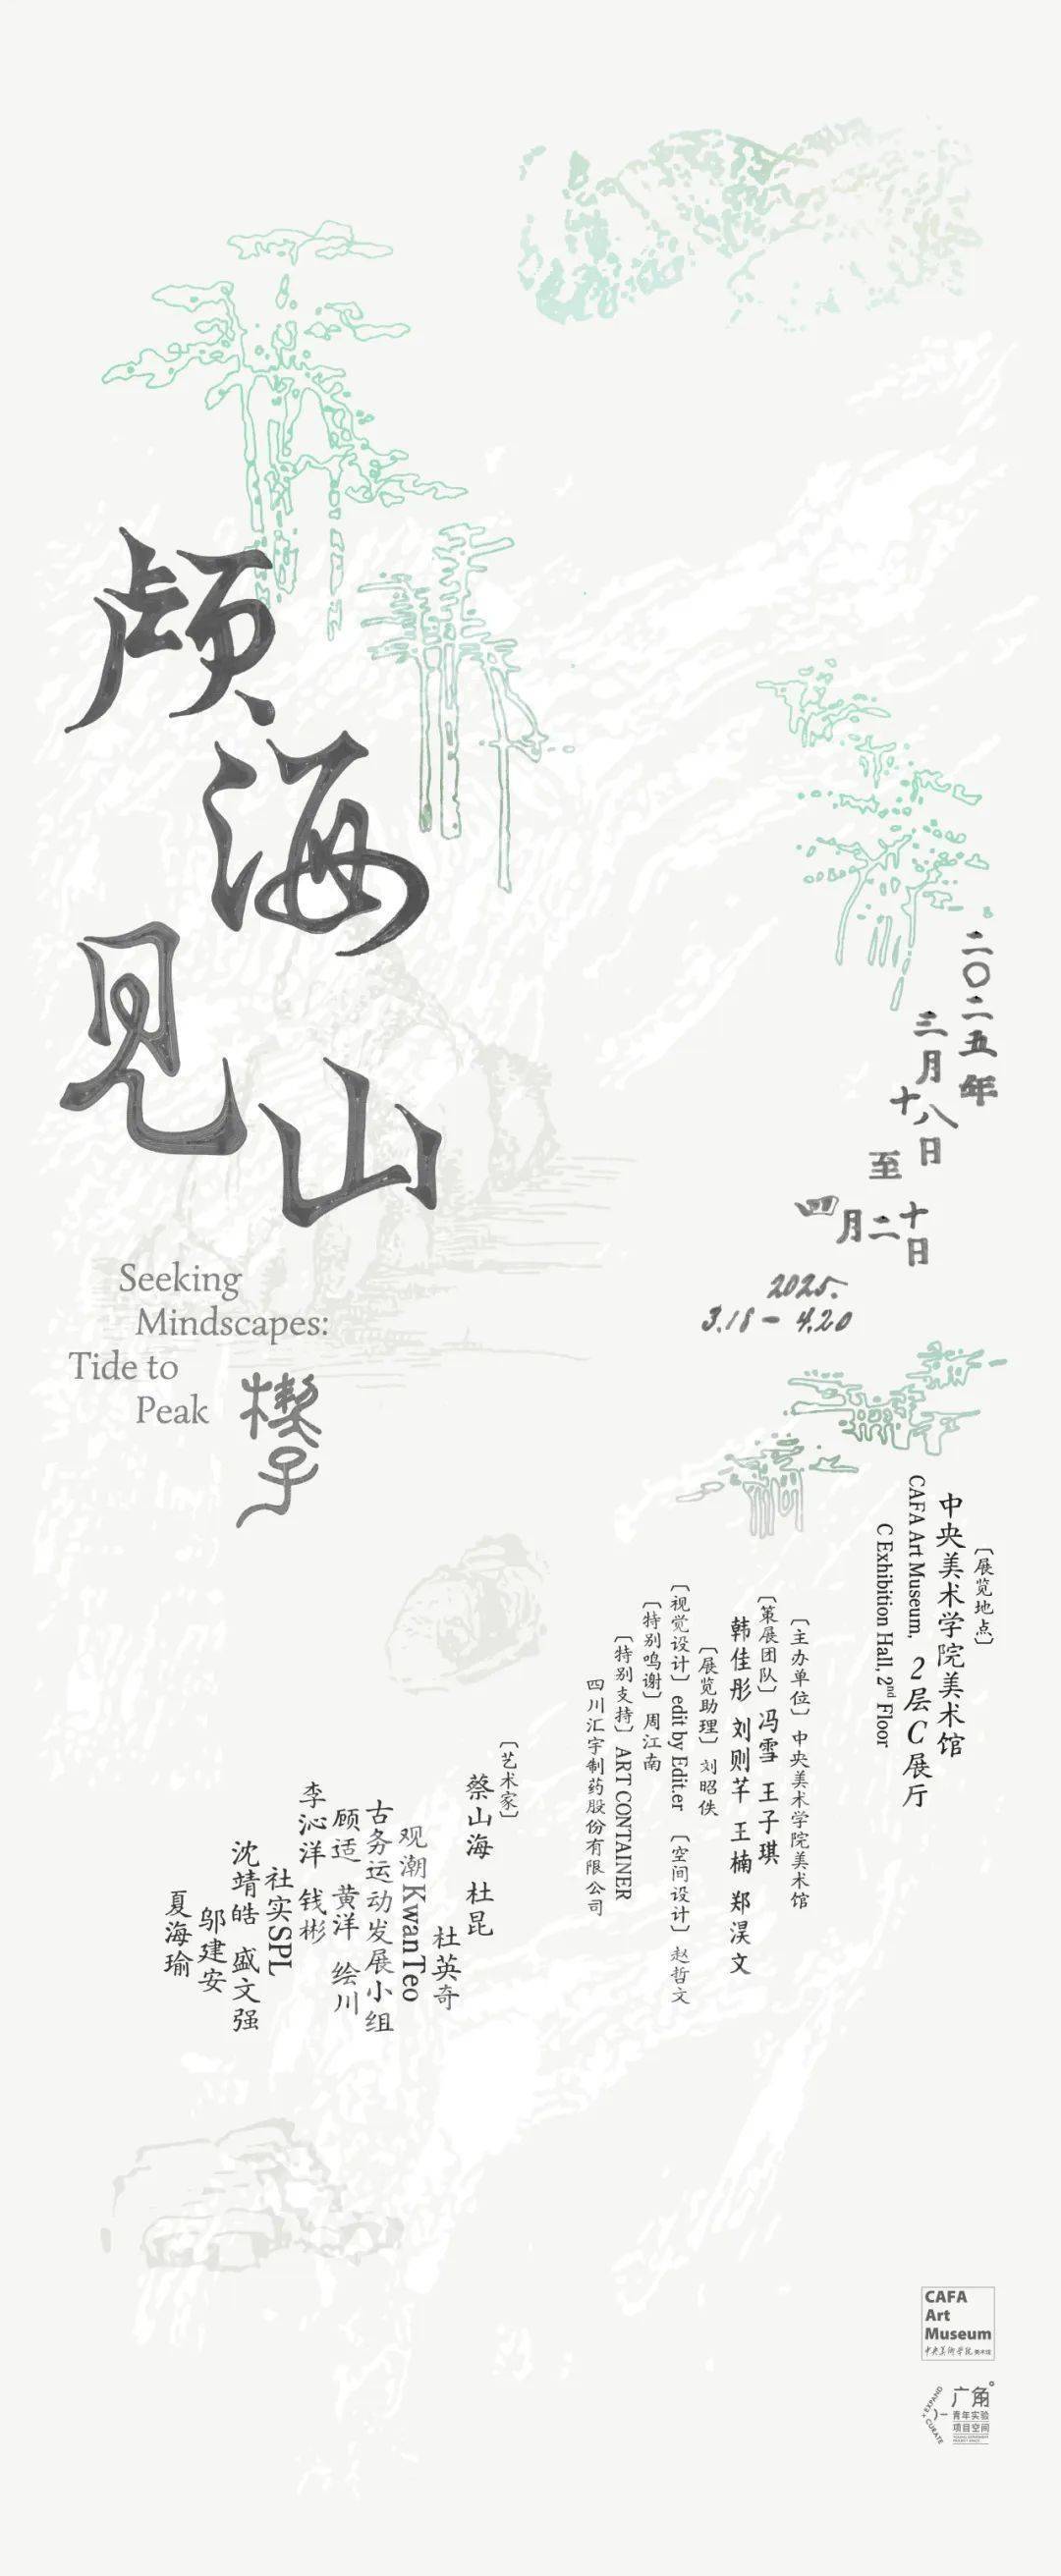 颅
海
见
山
Seeking
Mindscapes:
Tide to
Peak
楔子
二〇二五年
三月
十八日
至
四月二十日
2025.
3.18 – 4.20
〔展览地点〕
中央美术学院美术馆
CAFA Art Museum, 2层C展厅
C Exhibition Hall, 2nd Floor
〔主办单位〕 中央美术学院美术馆
〔策展团队〕 冯雪 王子琪
韩佳彤 刘则芊 王楠 郑淏文
〔展览助理〕 刘昭佚
〔视觉设计〕 edit by Edit.er 〔空间设计〕 赵哲文
〔特别鸣谢〕 周江南
〔特别支持〕 ART CONTAINER
四川汇宇制药股份有限公司
〔艺术家〕
蔡山海 杜昆
杜英奇
观潮KwanTeo
古务运动发展小组
顾适 黄洋 绘川
李沁洋 钱彬
社实SPL
沈靖皓 盛文强
邬建安
夏海瑜
CAFA
Art
Museum
中央美術学院 美术馆
EXPAND
CURATE
广角
青年实验
项目空间